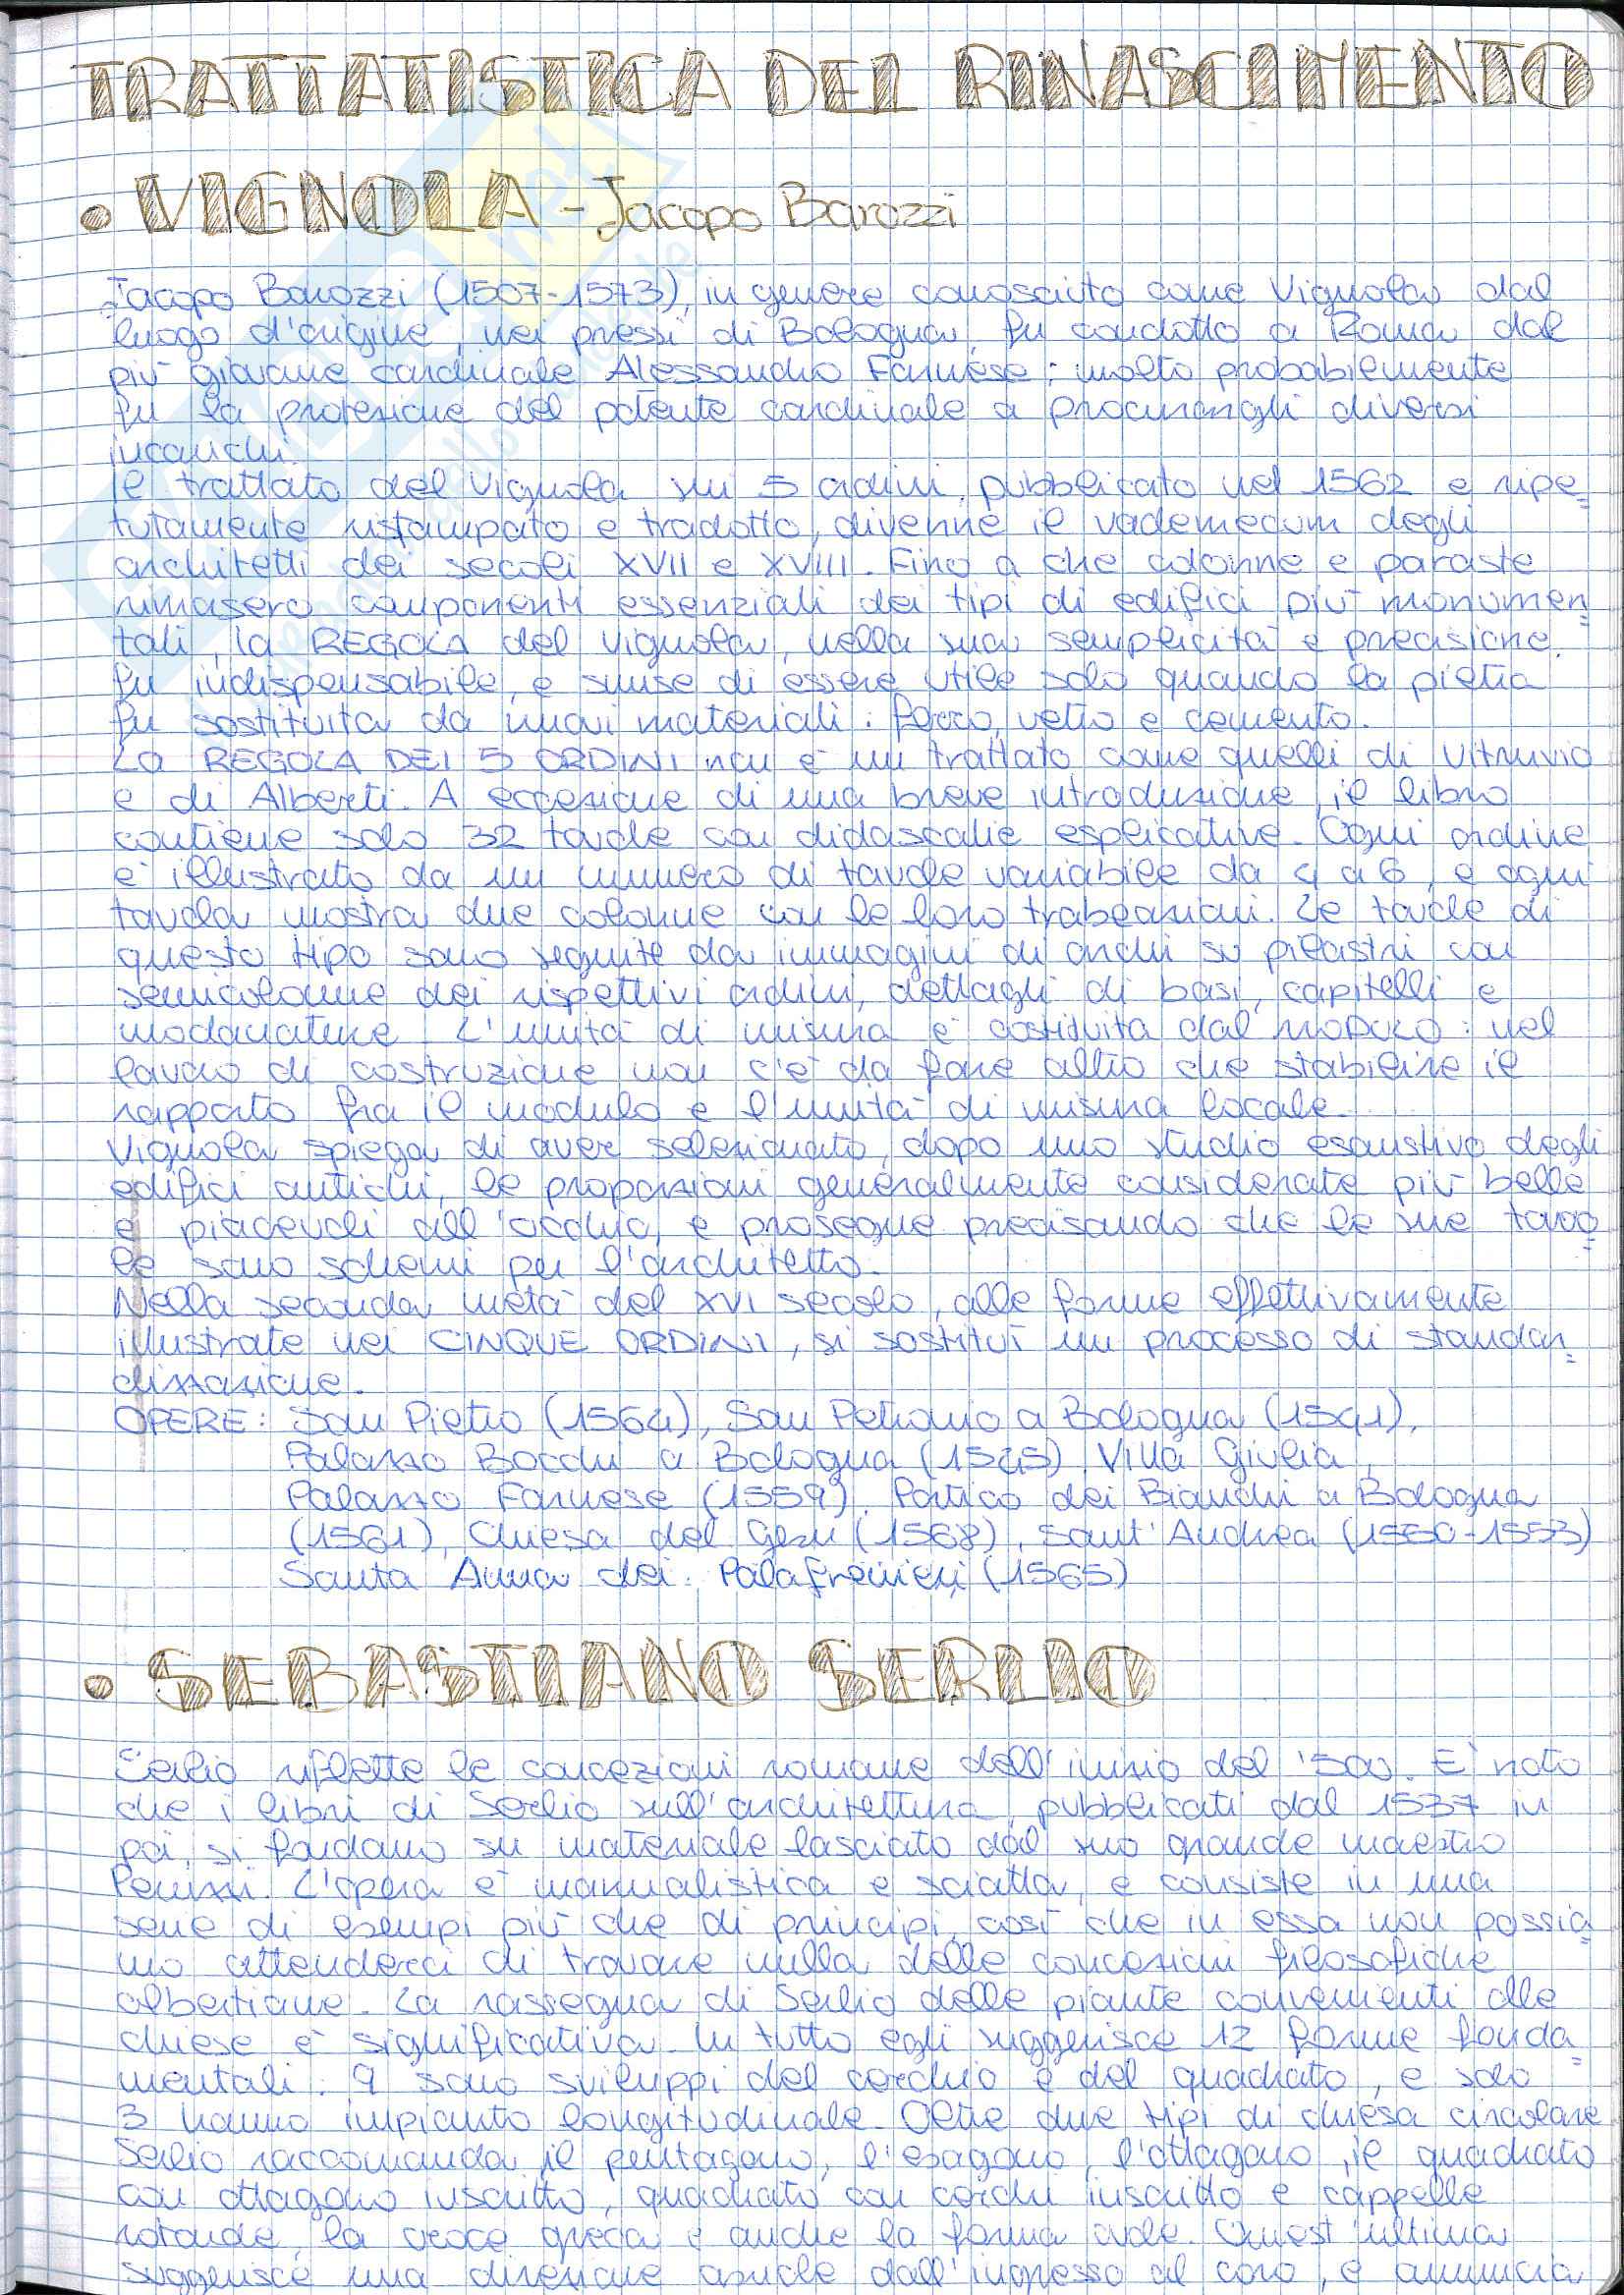 TRATTATISTICA DEL RINASCIMENTO
• VIGNOLA - Jacopo Barozzi
Jacopo Barozzi (1507-1573), in genere conosciuto come Vignola dal
luogo d'origine, nei pressi di Bologna, fu condotto a Roma dal
più giovane cardinale Alessandro Farnese: molto probabilmente
fu la protezione del potente cardinale a procurargli diversi
incarichi.
Il trattato del Vignola sui 5 ordini, pubblicato nel 1562 e ripe=
tutamente ristampato e tradotto, divenne il vademecum degli
architetti dei secoli XVII e XVIII. Fino a che colonne e paraste
rimasero componenti essenziali dei tipi di edifici più monumen=
tali, la REGOLA del Vignola, nella sua semplicità e precisione,
fu indispensabile, e smise di essere utile solo quando la pietra
fu sostituita da nuovi materiali: ferro, vetro e cemento.
La REGOLA DEI 5 ORDINI non è un trattato come quelli di Vitruvio
e di Alberti. A eccezione di una breve introduzione, il libro
contiene solo 32 tavole con didascalie esplicative. Ogni ordine
è illustrato da un numero di tavole variabile da 4 a 6, e ogni
tavola mostra due colonne con le loro trabeazioni. Le tavole di
questo tipo sono seguite da immagini di archi su pilastri con
semicolonne dei rispettivi ordini, dettagli di basi, capitelli e
modanature. L'unità di misura è costituita dal MODULO: nel
lavoro di costruzione non c'è da fare altro che stabilire il
rapporto fra il modulo e l'unità di misura locale.
Vignola spiega di aver selezionato, dopo uno studio esaustivo degli
edifici antichi, le proporzioni generalmente considerate più belle
e piacevoli all'occhio, e prosegue precisando che le sue tavo=
le sono schemi per l'architetto.
Nella seconda metà del XVI secolo, alle forme effettivamente
illustrate nei CINQUE ORDINI, si sostituì un processo di standar=
dizzazione.
OPERE: San Pietro (1564), San Petronio a Bologna (1541),
Palazzo Bocchi a Bologna (1545), Villa Giulia,
Palazzo Farnese (1559), Portico dei Bianchi a Bologna
(1561), Chiesa del Gesù (1568), Sant'Andrea (1550-1553)
Santa Anna dei Palafrenieri (1565)
• SEBASTIANO SERLIO
Serlio riflette le concezioni romane dell'inizio del '500. E' noto
che i libri di Serlio sull'architettura, pubblicati dal 1537 in
poi, si fondano su materiale lasciato dal suo grande maestro
Peruzzi. L'opera è manualistica e sciatta, e consiste in una
serie di esempi più che di principi, così che in essa non possia=
mo attenderci di trovare nulla delle concezioni filosofiche
albertiane. La rassegna di Serlio delle piante convenienti alle
chiese è significativa. In tutto egli suggerisce 12 forme fonda=
mentali: 9 sono sviluppi del cerchio e del quadrato, e solo
3 hanno impianto longitudinale. Oltre due tipi di chiesa circolare
Serlio raccomanda il pentagono, l'esagono, l'ottagono, il quadrato
con ottagono inscritto, quadrato con cerchi inscritto e cappelle
rotonde, la croce greca e anche la forma ovale. Quest'ultima
suggerisce una direzione assiale dall'ingresso al coro, e annuncia